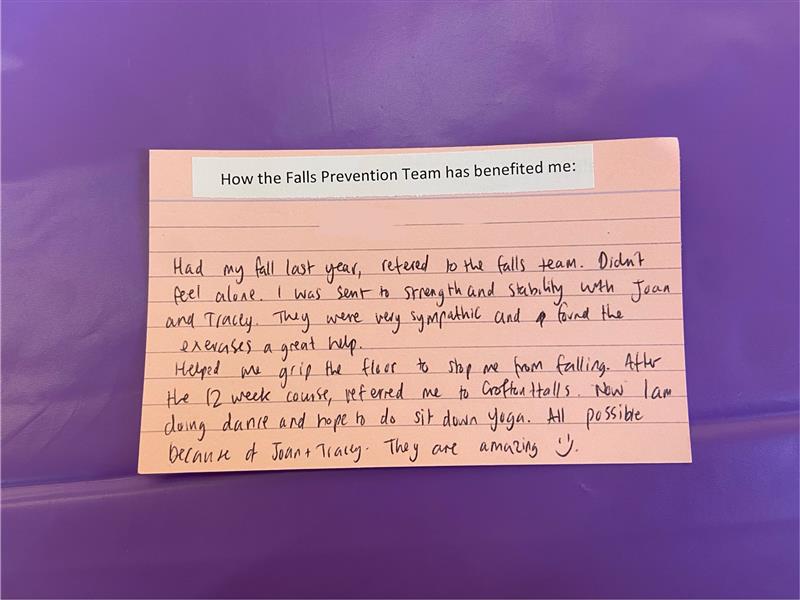 How the Falls Prevention Team has benefited me:
Had my fall last year, refered to the falls team. Didn't
feel alone. I was sent to strength and stability with Joan
and Tracey. They were very sympathic and found the
exercises a great help.
Helped me grip the floor to stop me from falling. After
the 12 week course, referred me to Crofton Halls. Now I am
doing dance and hope to do sit down yoga. All possible
because of Joan + Tracey. They are amazing :).